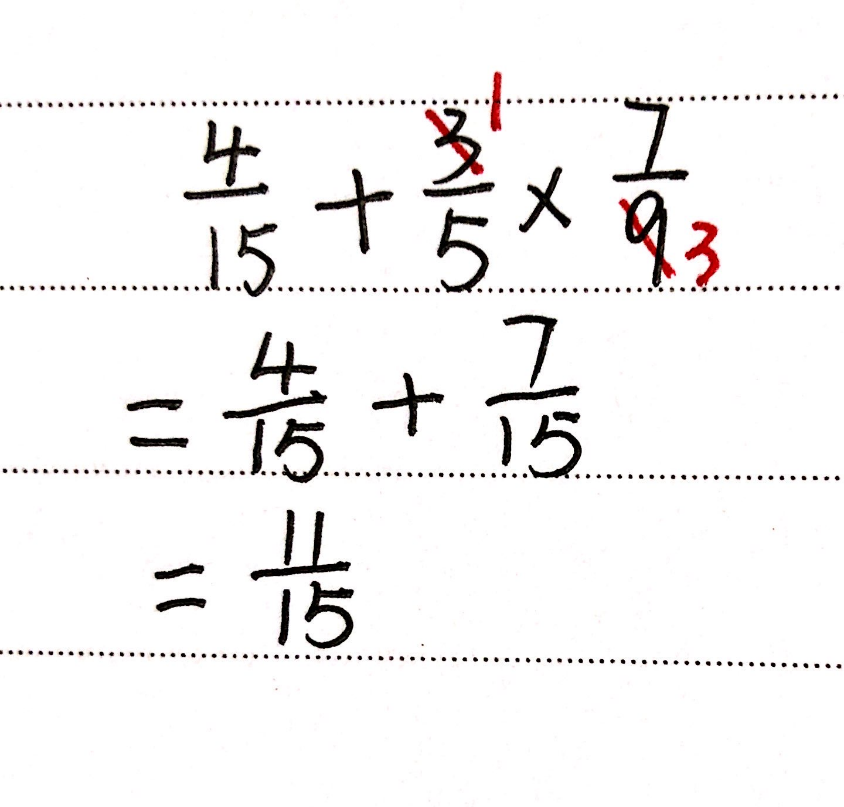 4/15 + 3/5 1 × 7/9 3
= 4/15 + 7/15
= 11/15